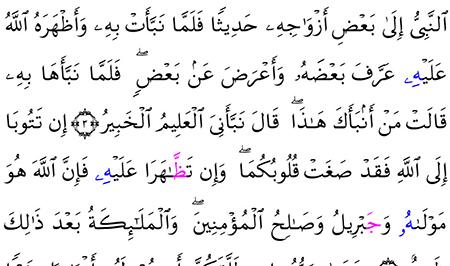 ٱلنَّبِىُّ إِلَىٰ بَعْضِ أَزْوَٰجِهِۦ حَدِيثًا فَلَمَّا نَبَّأَتْ بِهِۦ وَأَظْهَرَهُ ٱللَّهُ
عَلَيْهِۦ عَرَّفَ بَعْضَهُۥ وَأَعْرَضَ عَنۢ بَعْضٍۖ فَلَمَّا نَبَّأَهَا بِهِۦ
قَالَتْ مَنْ أَنۢبَأَكَ هَٰذَاۖ قَالَ نَبَّأَنِىَ ٱلْعَلِيمُ ٱلْخَبِيرُ ۝٣ إِن تَتُوبَا
إِلَى ٱللَّهِ فَقَدْ صَغَتْ قُلُوبُكُمَاۖ وَإِن تَظَّٰهَرَا عَلَيْهِۦ فَإِنَّ ٱللَّهَ هُوَ
مَوْلَىٰهُۥ وَجَبْرِيلُ وَصَٰلِحُ ٱلْمُؤْمِنِينَۖ وَٱلْمَلَٰٓئِكَةُ بَعْدَ ذَٰلِكَ